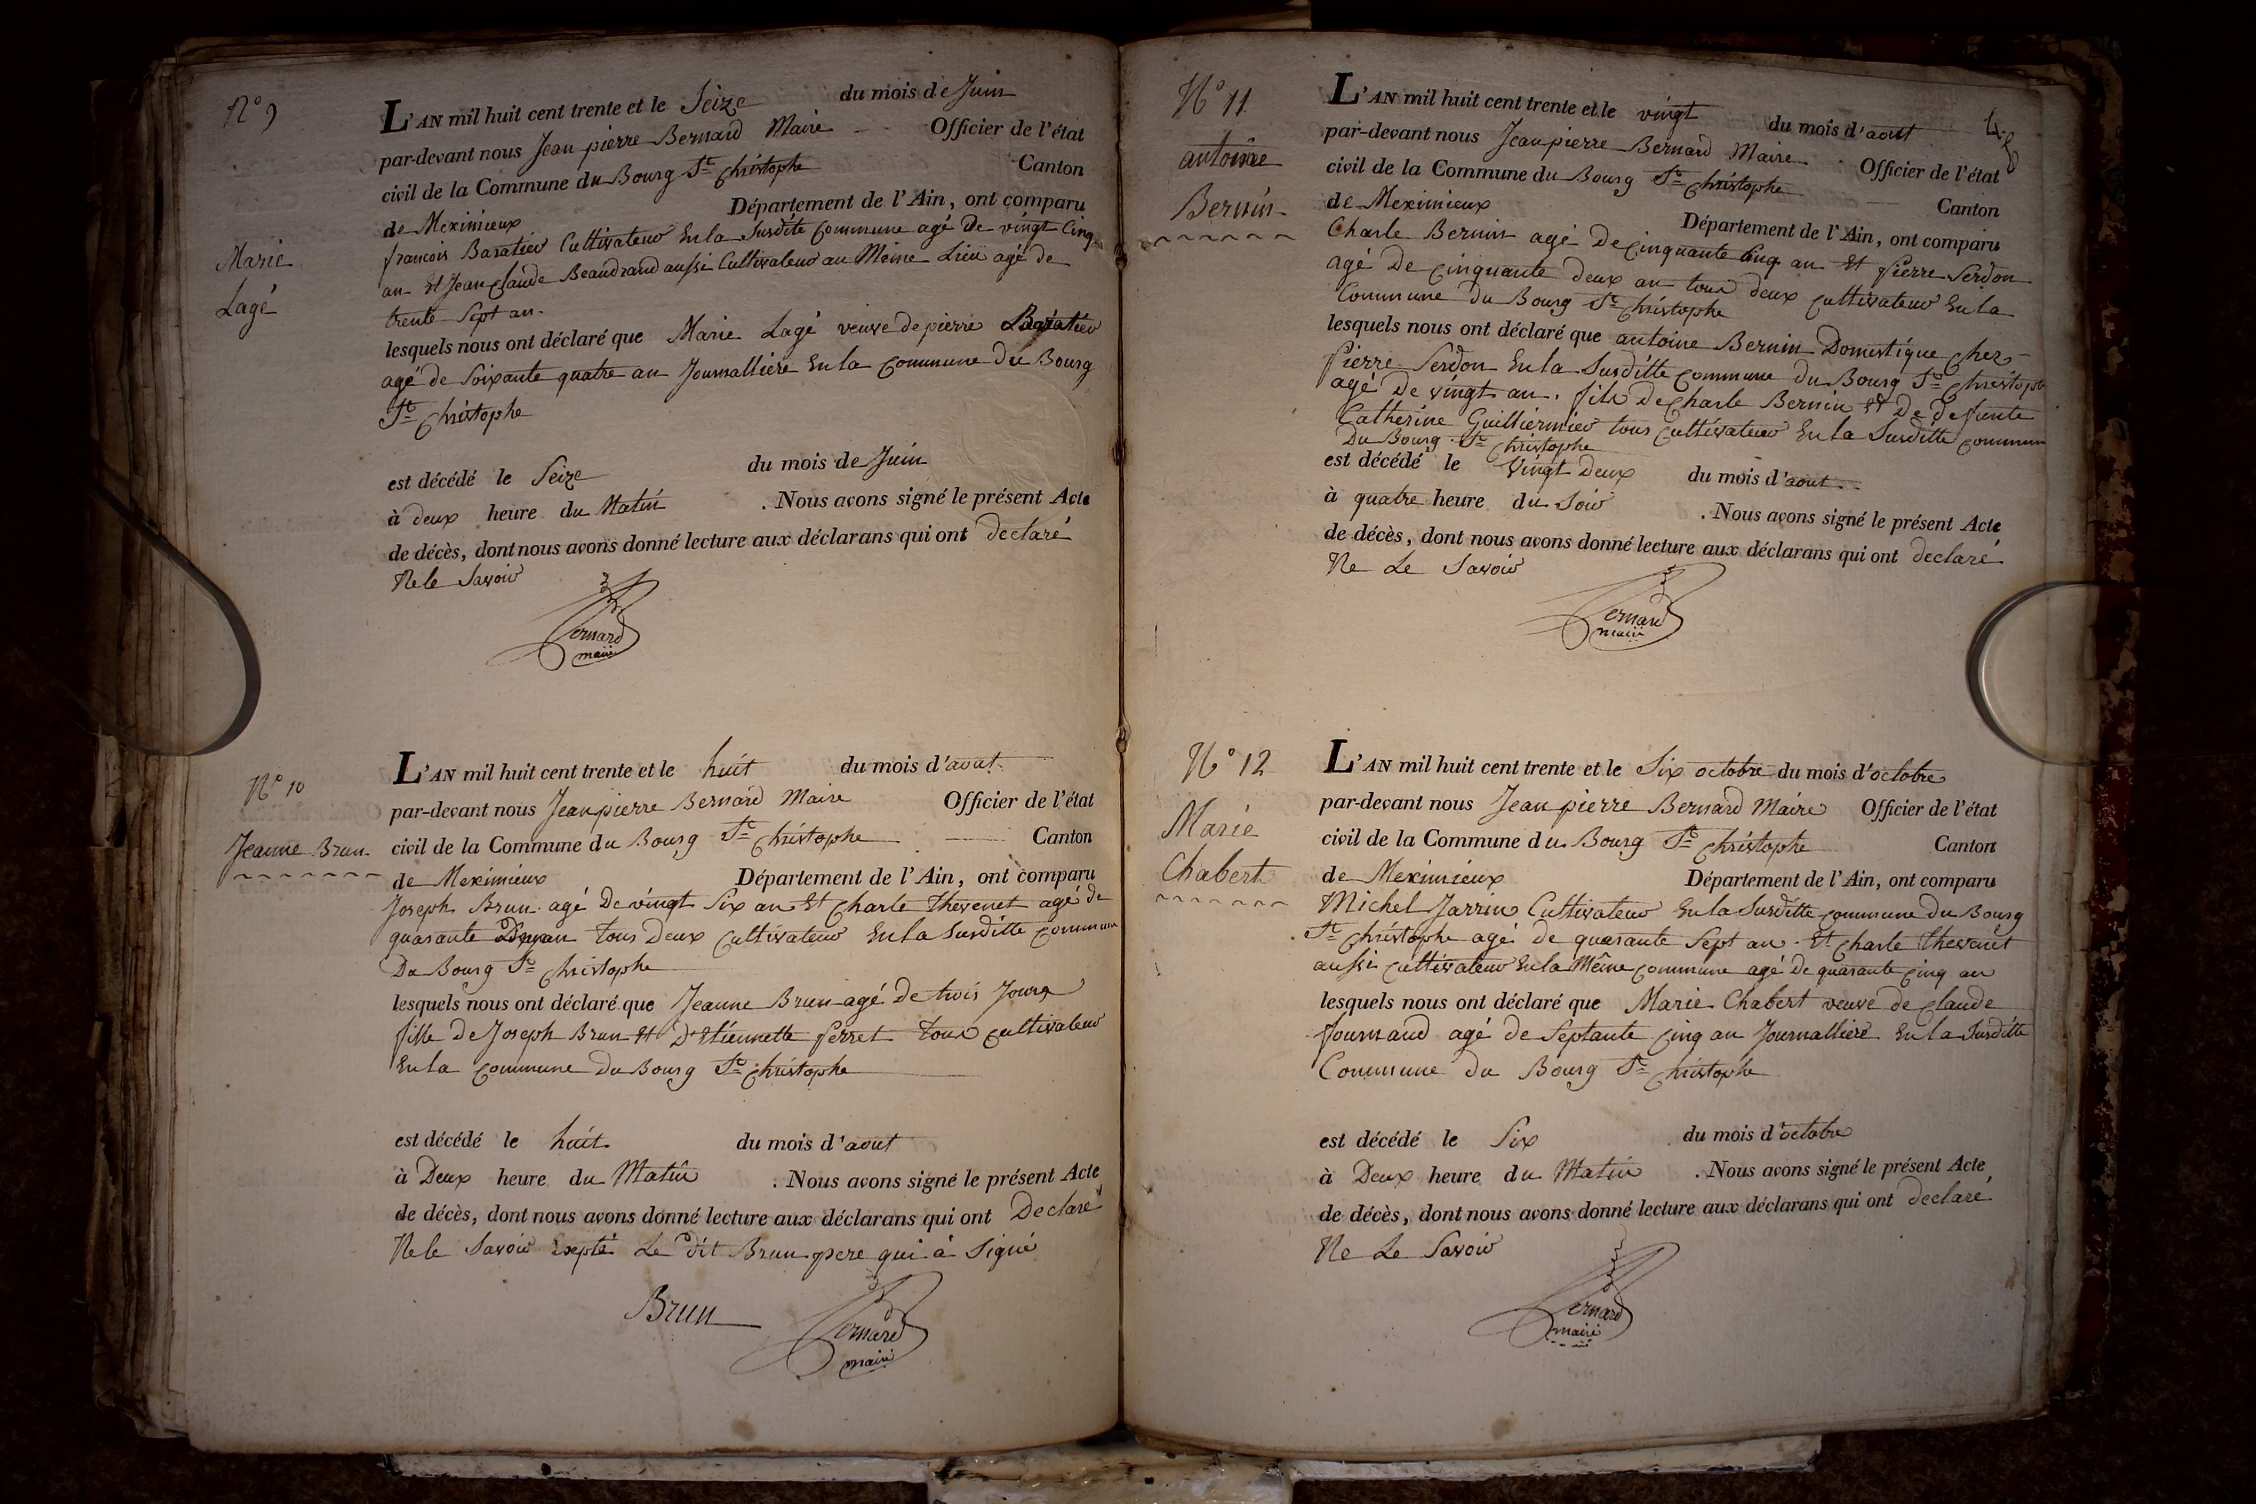 N° 9
Marie
Lagé
L'AN mil huit cent trente et le Seize du mois de Juin
par-devant nous Jean pierre Bernard Maire Officier de l'état
civil de la Commune du Bourg St christophe Canton
de Meximieux Département de l'Ain, ont comparu
francois Baratier Cultivateur En la Susdite Commune agé De vingt Cinq
an Et Jean Claude Beaudrand aussi Cultivateur au Meme Lieu agé de
trente Sept an.
lesquels nous ont déclaré que Marie Lagé veuve de pierre Baratier
agé de Soixante quatre an Journalliere En la Commune Du Bourg
St Christophe
est décédé le Seize du mois de Juin
à deux heure du Matin . Nous avons signé le présent Acte
de décès, dont nous avons donné lecture aux déclarans qui ont declaré
Ne le Savoir
Bernard
maire
N° 10
Jeanne Brun
L'AN mil huit cent trente et le huit du mois d'aout
par-devant nous Jean pierre Bernard Maire Officier de l'état
civil de la Commune du Bourg St Christophe Canton
de Meximieux Département de l'Ain, ont comparu
Joseph Brun agé De vingt Six an Et Charle Thevenet agé de
quarante an tous Deux Cultivateur En la Susditte Commune
Du Bourg St Christophe
lesquels nous ont déclaré que Jeanne Brun agé de trois Jours
fille de Joseph Brun Et D'Etiennette ferret tous Cultivateur
En la Commune Du Bourg St Christophe
est décédé le huit du mois d'aout
à Deux heure du Matin . Nous avons signé le présent Acte
de décès, dont nous avons donné lecture aux déclarans qui ont Declaré
Ne le Savoir Expté Le dit Brun pere qui à Signé
Brun Bernard
maire
N° 11
antoine
Bernin
L'AN mil huit cent trente et le vingt du mois d'aout
par-devant nous Jean pierre Bernard Maire Officier de l'état
civil de la Commune du Bourg St Christophe Canton
de Meximieux Département de l'Ain, ont comparu
Charle Bernin agé De Cinquante Cinq an Et pierre Serdon
agé De Cinquante deux an tous deux Cultivateur En la
Commune Du Bourg St Christophe
lesquels nous ont déclaré que antoine Bernin Domestique Chez
Pierre Serdon En la Susditte Commune du Bourg St Christophe
agé De vingt an, fils De Charle Bernin Et De defunte
Catherine Guilliermier tous Cultivateur En la Susditte Commune
Du Bourg St Christophe
est décédé le vingt Deux du mois d'aout
à quatre heure du Soir . Nous avons signé le présent Acte
de décès, dont nous avons donné lecture aux déclarans qui ont declaré
Ne Le Savoir
Bernard
maire
N° 12
Marie
Chabert
L'AN mil huit cent trente et le Six octobre du mois d'octobre
par-devant nous Jean pierre Bernard Maire Officier de l'état
civil de la Commune du Bourg St Christophe Canton
de Meximieux Département de l'Ain, ont comparu
Michel Jarrin Cultivateur En la Susditte Commune Du Bourg
St Christophe agé de quarante Sept an. Et Charle Thevenet
aussi Cultivateur En la Même Commune agé de quarante Cinq an
lesquels nous ont déclaré que Marie Chabert veuve de Claude
Journaud agé de Septante Cinq an Journalliere En la Susditte
Commune Du Bourg St Christophe
est décédé le Six du mois d'octobre
à Deux heure du Matin . Nous avons signé le présent Acte
de décès, dont nous avons donné lecture aux déclarans qui ont declaré
Ne Le Savoir
Bernard
maire